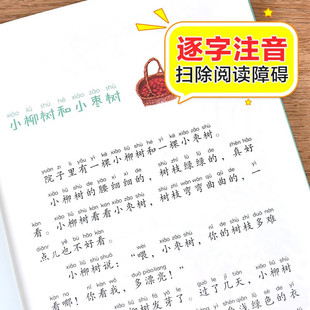 逐字注音
扫除阅读障碍
xiǎo liǔ shù hé xiǎo zǎo shù
小柳树和小枣树
yuàn zi li yǒu yì kē xiǎo liǔ shù hé yì kē xiǎo zǎo shù
院子里有一棵小柳树和一棵小枣树。
xiǎo liǔ shù de yāo xì xì de shù zhī lǜ lǜ de zhēn hǎo
小柳树的腰细细的，树枝绿绿的，真好
kàn xiǎo liǔ shù kàn kan xiǎo zǎo shù shù zhī wān wān qū qū de yì
看。小柳树看看小枣树，树枝弯弯曲曲的，一
diǎnr yě bù hǎo kàn
点儿也不好看。
xiǎo liǔ shù shuō wèi xiǎo zǎo shù nǐ de shù zhī duō nán
小柳树说：“喂，小枣树，你的树枝多难
kàn na nǐ kàn wǒ duō piàoliang
看哪！你看我，多漂亮！”
树发芽了。过了几天，小柳树
浅绿色的衣